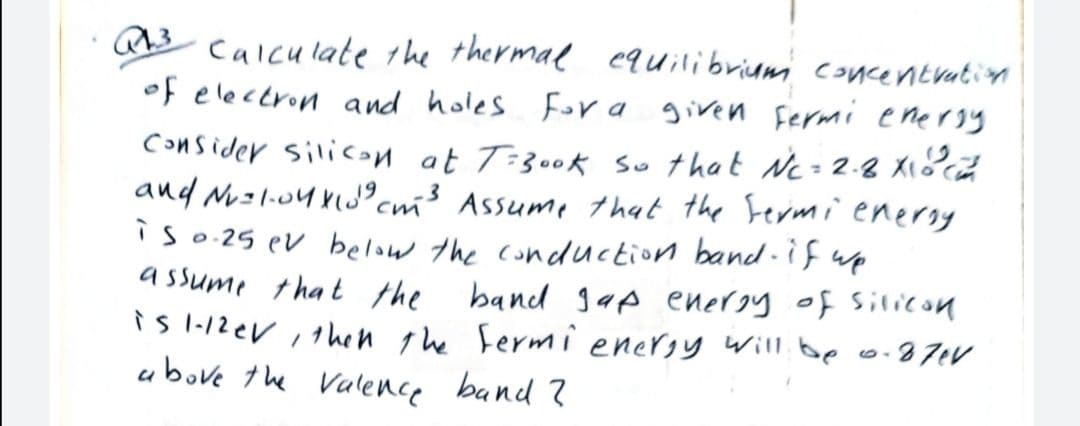 Q13 Calculate the thermal equilibrium concentration
of electron and holes for a given fermi energy
Consider silicon at T=300k so that Nc = 2.8 x10¹⁹ cm⁻³
and Nv=1.04 x10¹⁹ cm⁻³ Assume that the fermi energy
is 0.25 eV below the conduction band. if we
assume that the band gap energy of silicon
is 1.12eV, then the fermi energy will be 0.87eV
above the valence band ?